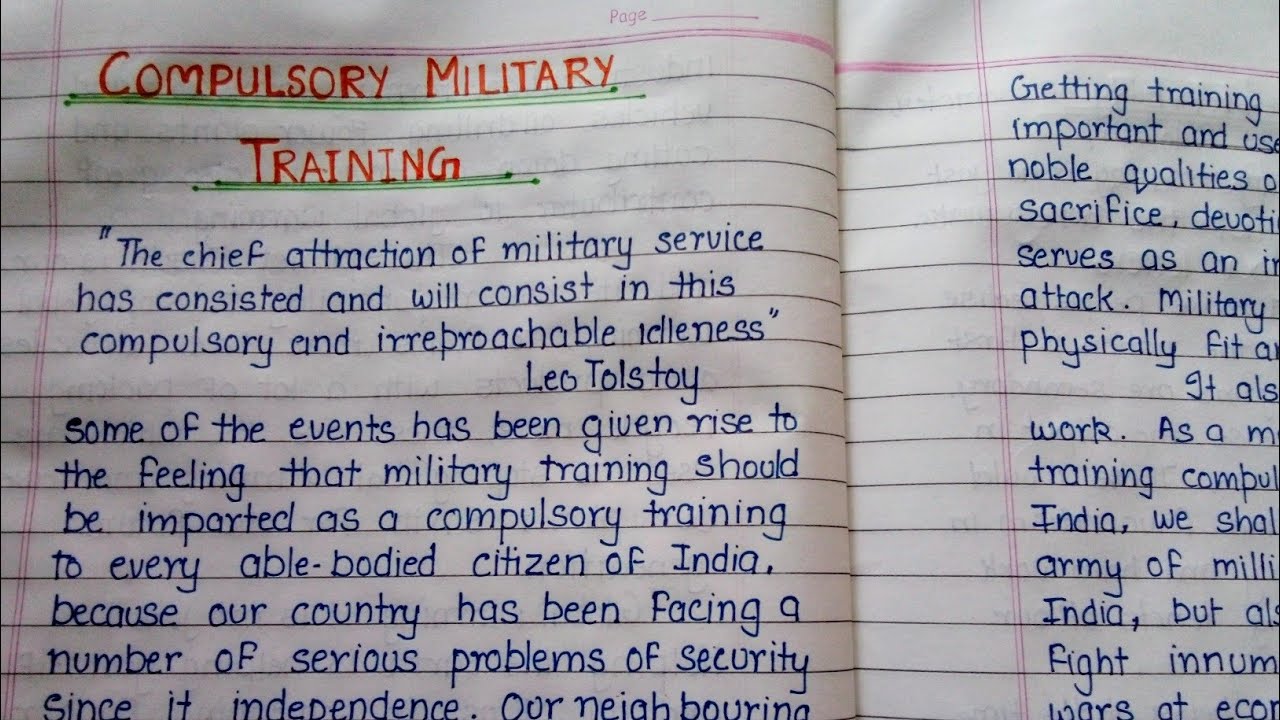 Page
COMPULSORY MILITARY
TRAINING
"The chief attraction of military service
has consisted and will consist in this
compulsory and irreproachable idleness"
Leo Tolstoy
some of the events has been given rise to
the feeling that military training should
be imparted as a compulsory training
to every able-bodied citizen of India.
because our country has been facing a
number of serious problems of security
Since it independence. Our neighbouring
Getting training
important and use
noble qualities o
sacrifice, devoti
serves as an in
attack. Military
physically fit an
It als
work. As a m
training compul
India, we shal
army of milli
India, but als
fight innum
wars at econ